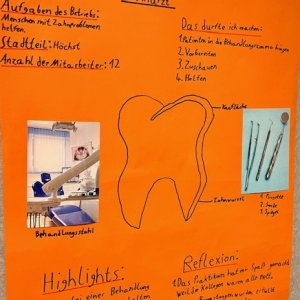 Aufgaben des Betriebs:
Menschen mit Zahnproblemen
helfen.
Stadtteil: Höchst
Anzahl der Mitarbeiter: 12
Das durfte ich machen:
1. Patienten in die Behandlungszimmer bringen
2. Vorbereiten
3. Zuschauen
4. Helfen
Kaufläche
Zahnwurzel
Behandlungsstuhl
1. Pinzette
2. Sonde
3. Spiegel
Highlights:
bei einer Behandlung
Reflexion:
1. Das Praktikum hat mir Spaß gemacht
weil die Kollegen waren alle nett.